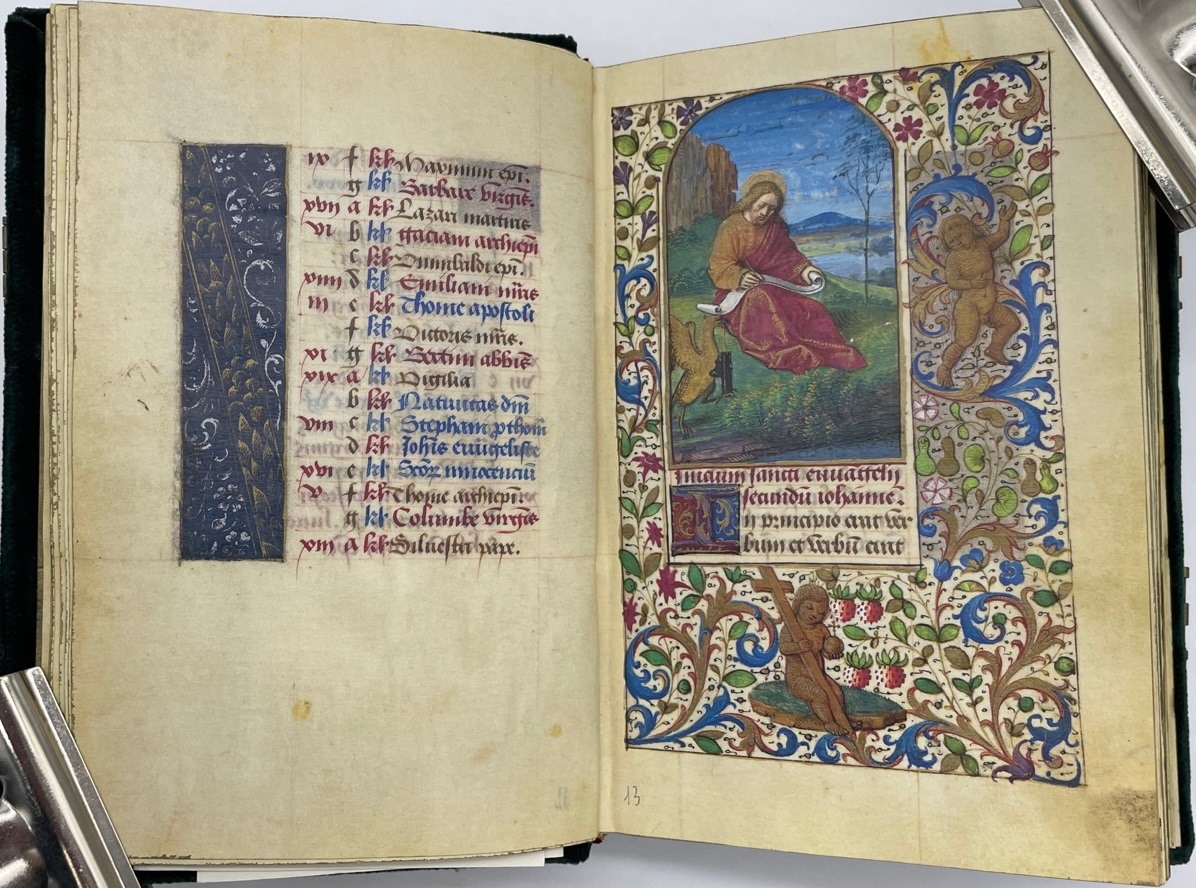 ix f kl Maximini epi.
g kl Barbare virgis.
xvii a kl Lazari martiris
vi b kl gaciani archiepi
c kl Vunibaldi epi.
xiiii d kl Emiliani mris
iii e kl Thome apostoli
f kl Victoris mris.
xi g kl Bertini abbis
xix a kl Vigilia
b kl Natiuitas dni
viii c kl Stephani prothom
d kl Johis euugeliste
xvi e kl Scorz innocenciu
v f kl Thome archiepi
g kl Columbe virgis
xiii a kl Siluestri pape.
Inicium sancti euuattelii
secundu iohanne.
In principio erat ver
bum et verbu erat
13